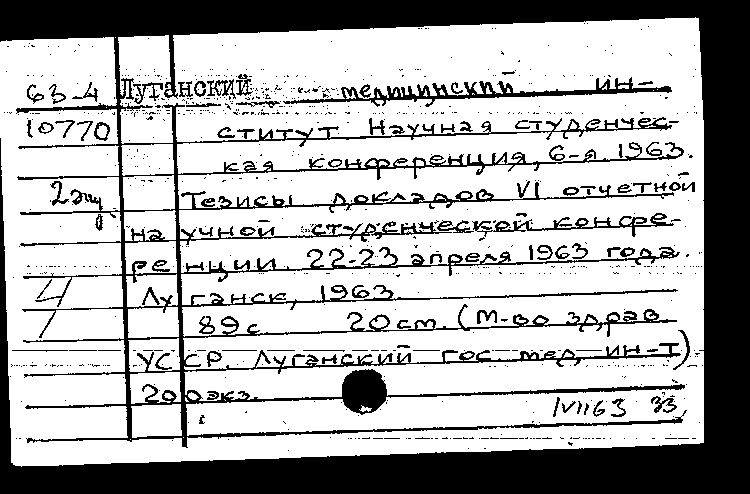 63-4 Луганский медицинский ин-
10770 ститут Научная студенчес-
кая конференция, 6-я. 1963.
2 экз Тезисы докладов VI отчетной
научной студенческой конфе-
ренции. 22-23 апреля 1963 года.
Луганск, 1963.
89с. 20 см. (М-во здрав.
УССР. Луганский гос. мед. ин-т)
200 экз.